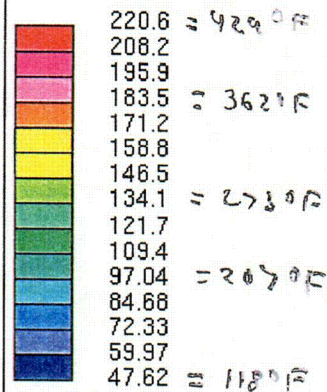 220.6 = 429°F
208.2
195.9
183.5 = 362°F
171.2
158.8
146.5
134.1 = 273°F
121.7
109.4
97.04 = 207°F
84.68
72.33
59.97
47.62 = 118°F